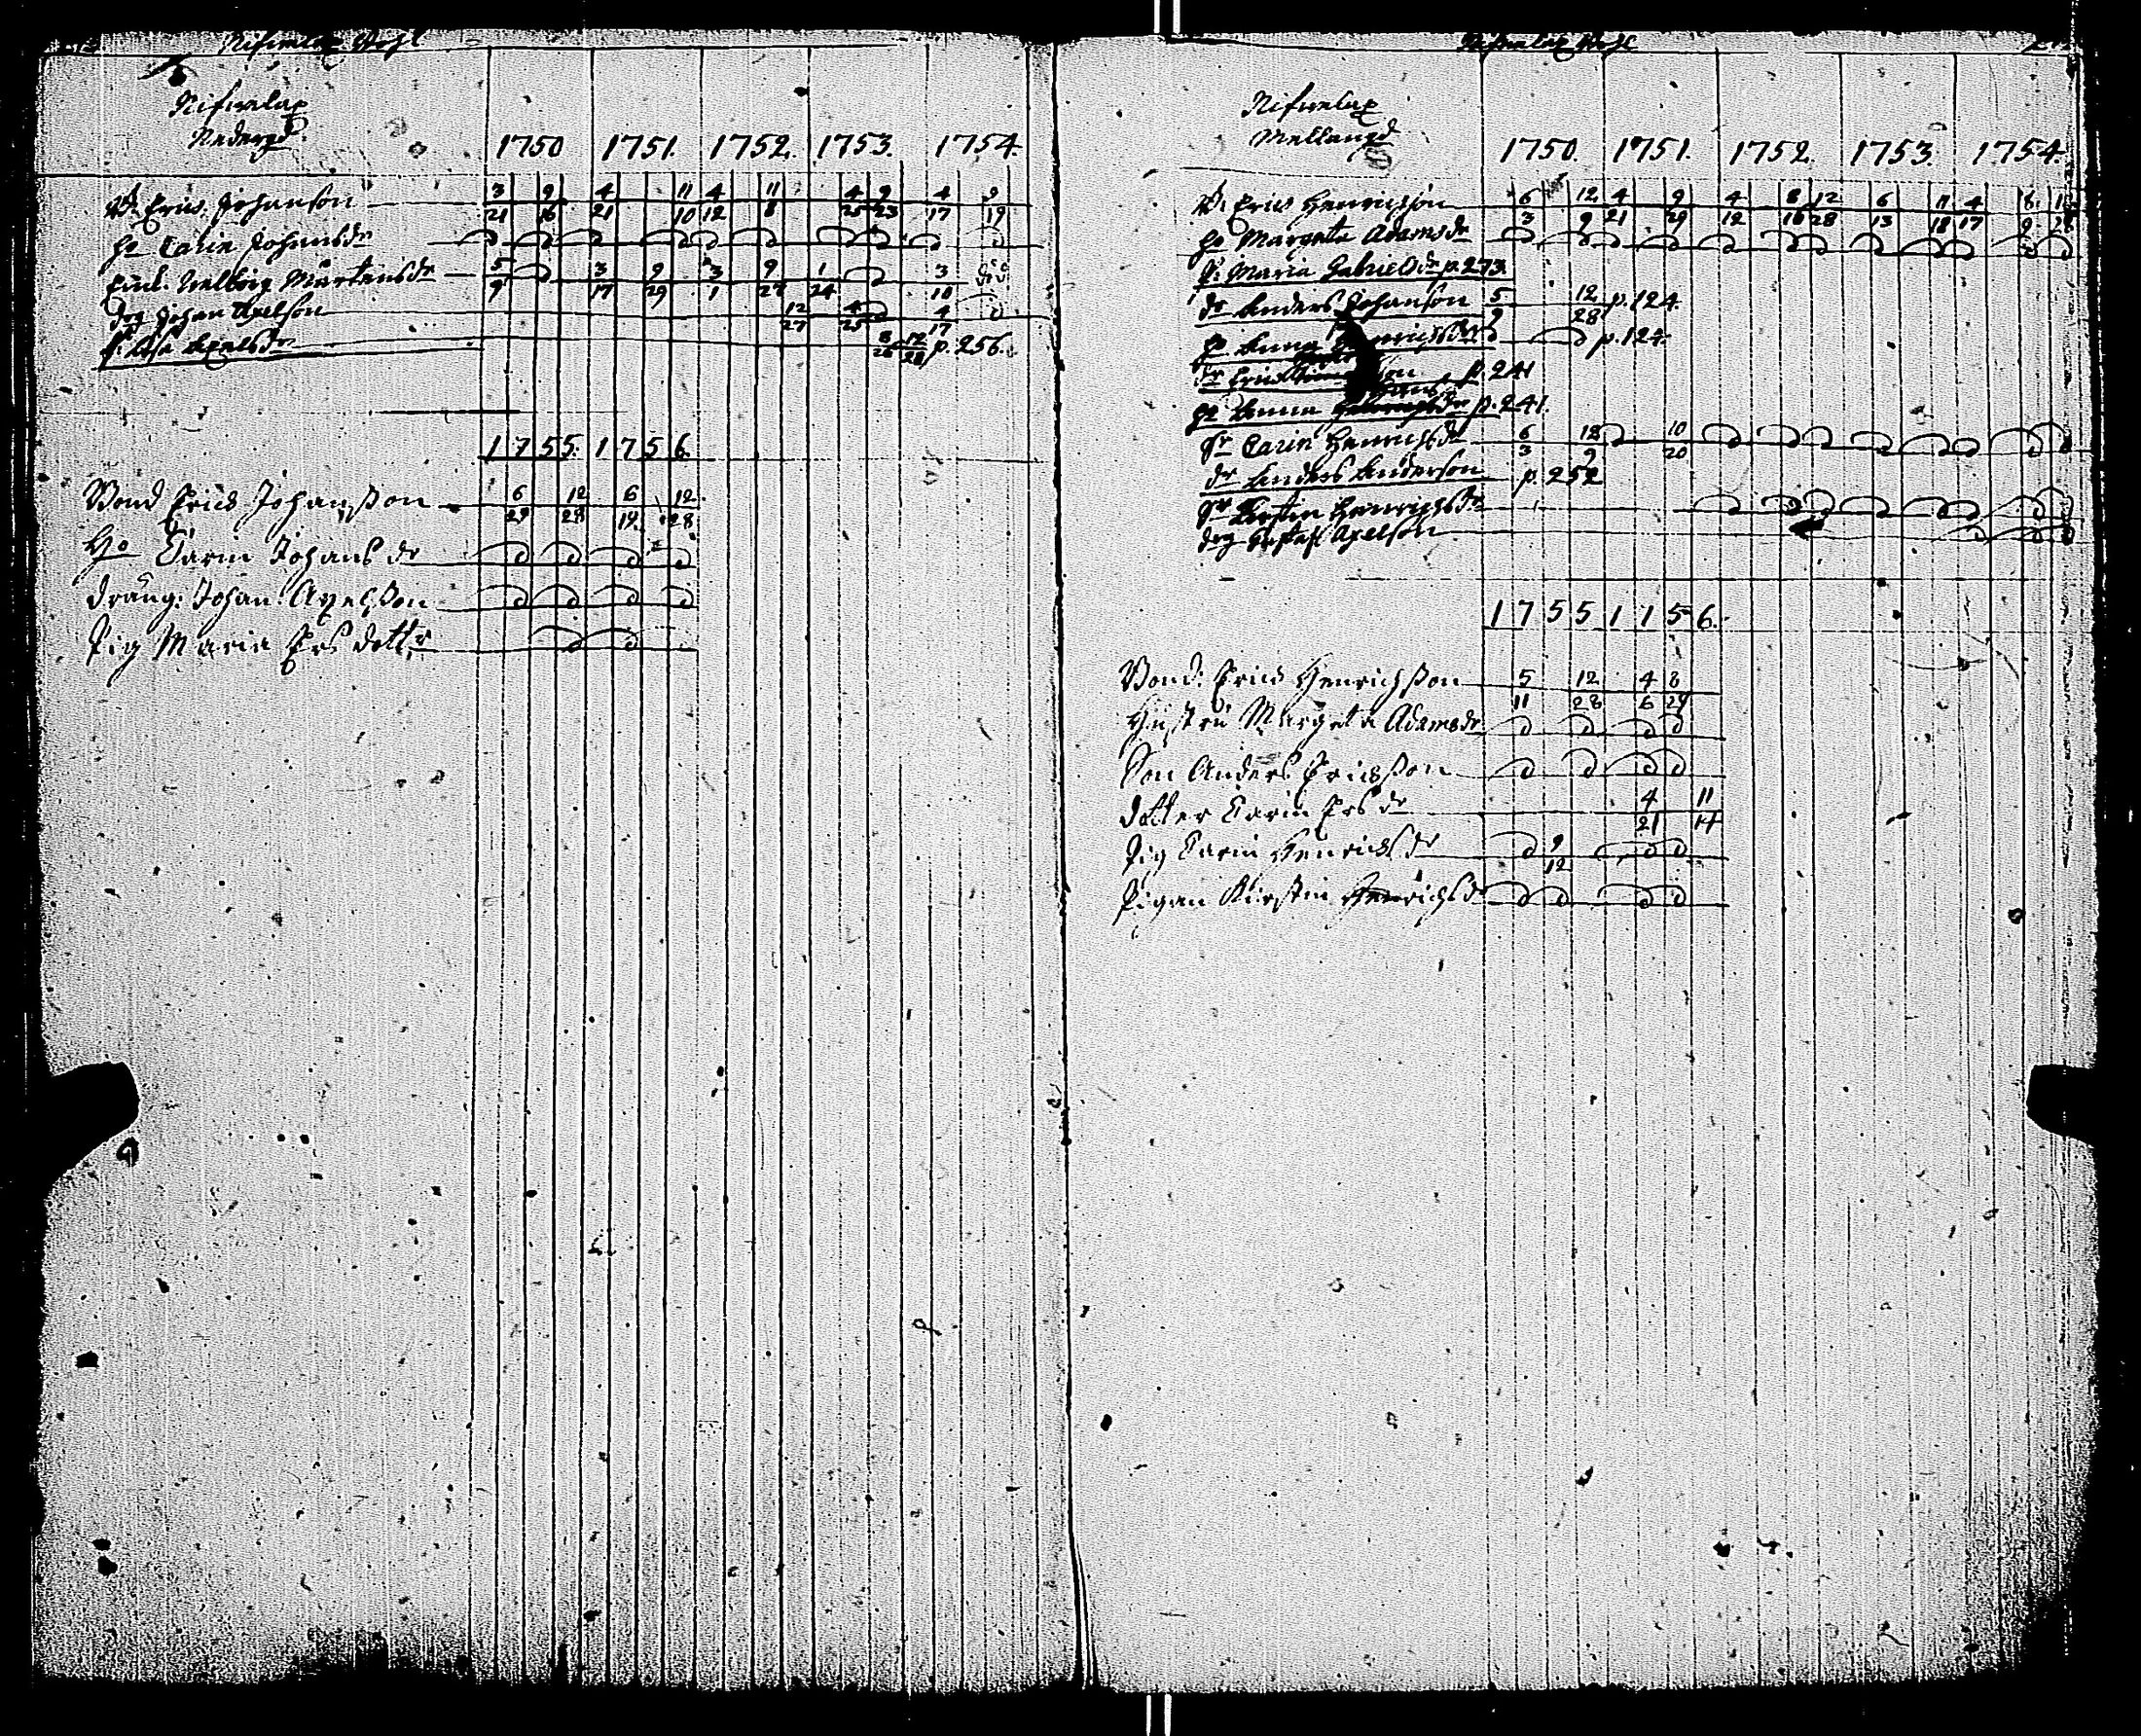 Nedergd
1750 1751. 1752. 1753. 1754.
B. Erics Johanson 3/21 9/16 4/21 11/10 4/12 11/8 4/25 9/23 4/17 9/19
Ho Carin Johansdr
Mårtensdr 5/9 3/17 9/29 3/1 9/27 1/24 3/10
drg Johan Axelson 12/27 4/25 4/17
Axelsdr 8/26 12/28 p. 256.
1755. 1756
Bond Erics Johansson 6/29 12/28 6/14 12/28
Ho Carin Johansdr
dräng: Johan Axelsson
Pig Maria Ersdotter
Mellangd
1750. 1751. 1752. 1753. 1754.
B. Erics Henricsson 6/3 12/9 4/21 9/29 4/12 8/16 12/28 6/13 11/18 4/17 8/9
Ho Margeta Adamsdr
P. Maria Gabrielsdr p. 273.
dr Anders Johanson 5/9 12/28 p. 124
Ho Anna p. 124
dr Eric p. 241
Ho Anna p. 241.
Pr Carin Henrichsdr 6/3 12/9 10/20
dr Anders Anderson p. 252
Pr Kerstin Henrichsdr
drg Gustaf Axelson
1755 1756.
Bond: Erics Henrichsson 5/11 12/28 4/6 8/29
Hustru Margeta Adamsdr
Son Anders Ericsson
dotter Carin Ersdr 4/21 11/14
Pig Carin Henrichsdr 9/12
Pigan Kirstin Henrichsdr